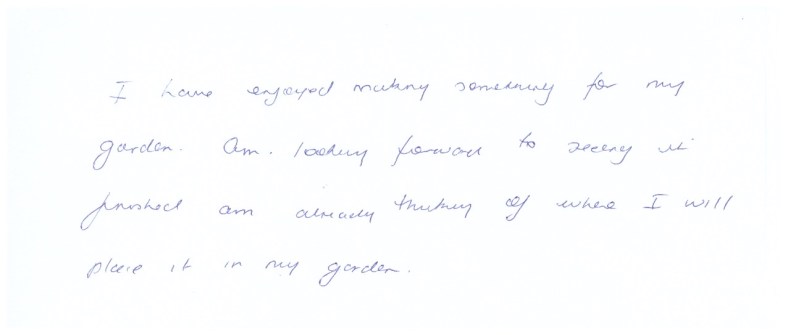 I have enjoyed making something for my
garden. Am. looking forward to seeing it
finished am already thinking of where I will
place it in my garden.